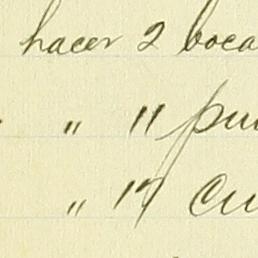 hacer 2 boca
" 11 pu
" 17 cu